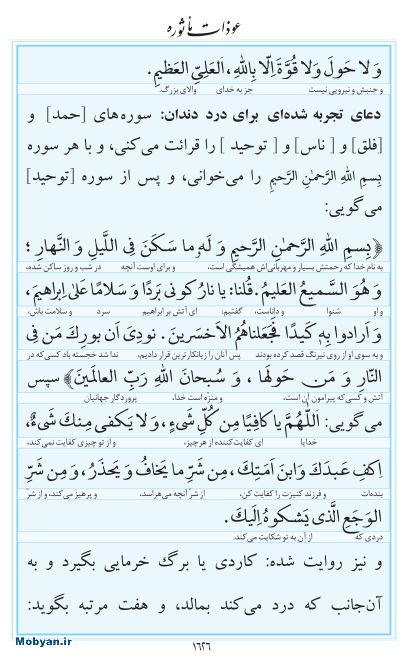 عوذات مأثوره
وَلا حَولَ وَلا قُوَّةَ اِلّا بِاللهِ، اَلعَلِىِّ العَظیمِ.
و جنبش و نیرویی نیست جز به خدای والای بزرگ.
دعای تجربه شده‌ای برای درد دندان: سوره‌های [حمد] و
[فلق] و [ ناس] و [ توحید ] را قرائت می‌کنی، و با هر سوره
بِسمِ اللهِ الرَّحمٰنِ الرَّحیمِ را می‌خوانی، و پس از سوره [توحید]
می‌گویی:
﴿بِسمِ اللهِ الرَّحمٰنِ الرَّحیمِ وَ لَهُ ما سَکَنَ فِى اللَّیلِ وَ النَّهارِ ؛
به نام خدا که رحمتش بسیار و مهربانی‌اش همیشگی است، و برای اوست آنچه در شب و روز ساکن شده،
وَ هُوَ السَّمیعُ العَلیمُ. قُلنا: یا نارُ کونى بَردًا وَ سَلامًا عَلىٰ اِبراهیمَ،
و او شنوا و داناست، گفتیم: ای آتش بر ابراهیم سرد و سلامت باش،
وَ اَرادوا بِهِ کَیدًا فَجَعَلناهُمُ الاَخسَرینَ . نودِىَ اَن بورِكَ مَن فِى
و به سوی او از روی نیرنگ قصد کرده بودند پس آنان را زیانکارترین قرار دادیم، ندا شد خجسته باد کسی که در
النّارِ وَ مَن حَولَها ، وَ سُبحانَ اللهِ رَبِّ العالَمینَ﴾ سپس
آتش و کسی که پیرامون آن است، و منزّه است خدا، پروردگار جهانیان
می‌گویی: اَللّٰهُمَّ یا کافِیًا مِن کُلِّ شَىءٍ، وَ لا یَکفى مِنكَ شَىءٌ،
خدایا ای کفایت‌کننده از هرچیز، و از تو چیزی کفایت نمی‌کند،
اِکفِ عَبدَكَ وَ ابنَ اَمَتِكَ ، مِن شَرِّ ما یَخافُ وَ یَحذَرُ ، وَ مِن شَرِّ
بنده‌ات و فرزند کنیزت را کفایت کن، از شرّ آنچه می‌هراسد، و پرهیز می‌کند، و از شرّ
الوَجَعِ الَّذى یَشکوهُ اِلَیكَ.
دردی که از آن به تو شکایت می‌کند.
و نیز روایت شده: کاردی یا برگ خرمایی بگیرد و به
آن‌جانب که درد می‌کند بمالد، و هفت مرتبه بگوید:
۱۶۲۶
Mobyan.ir